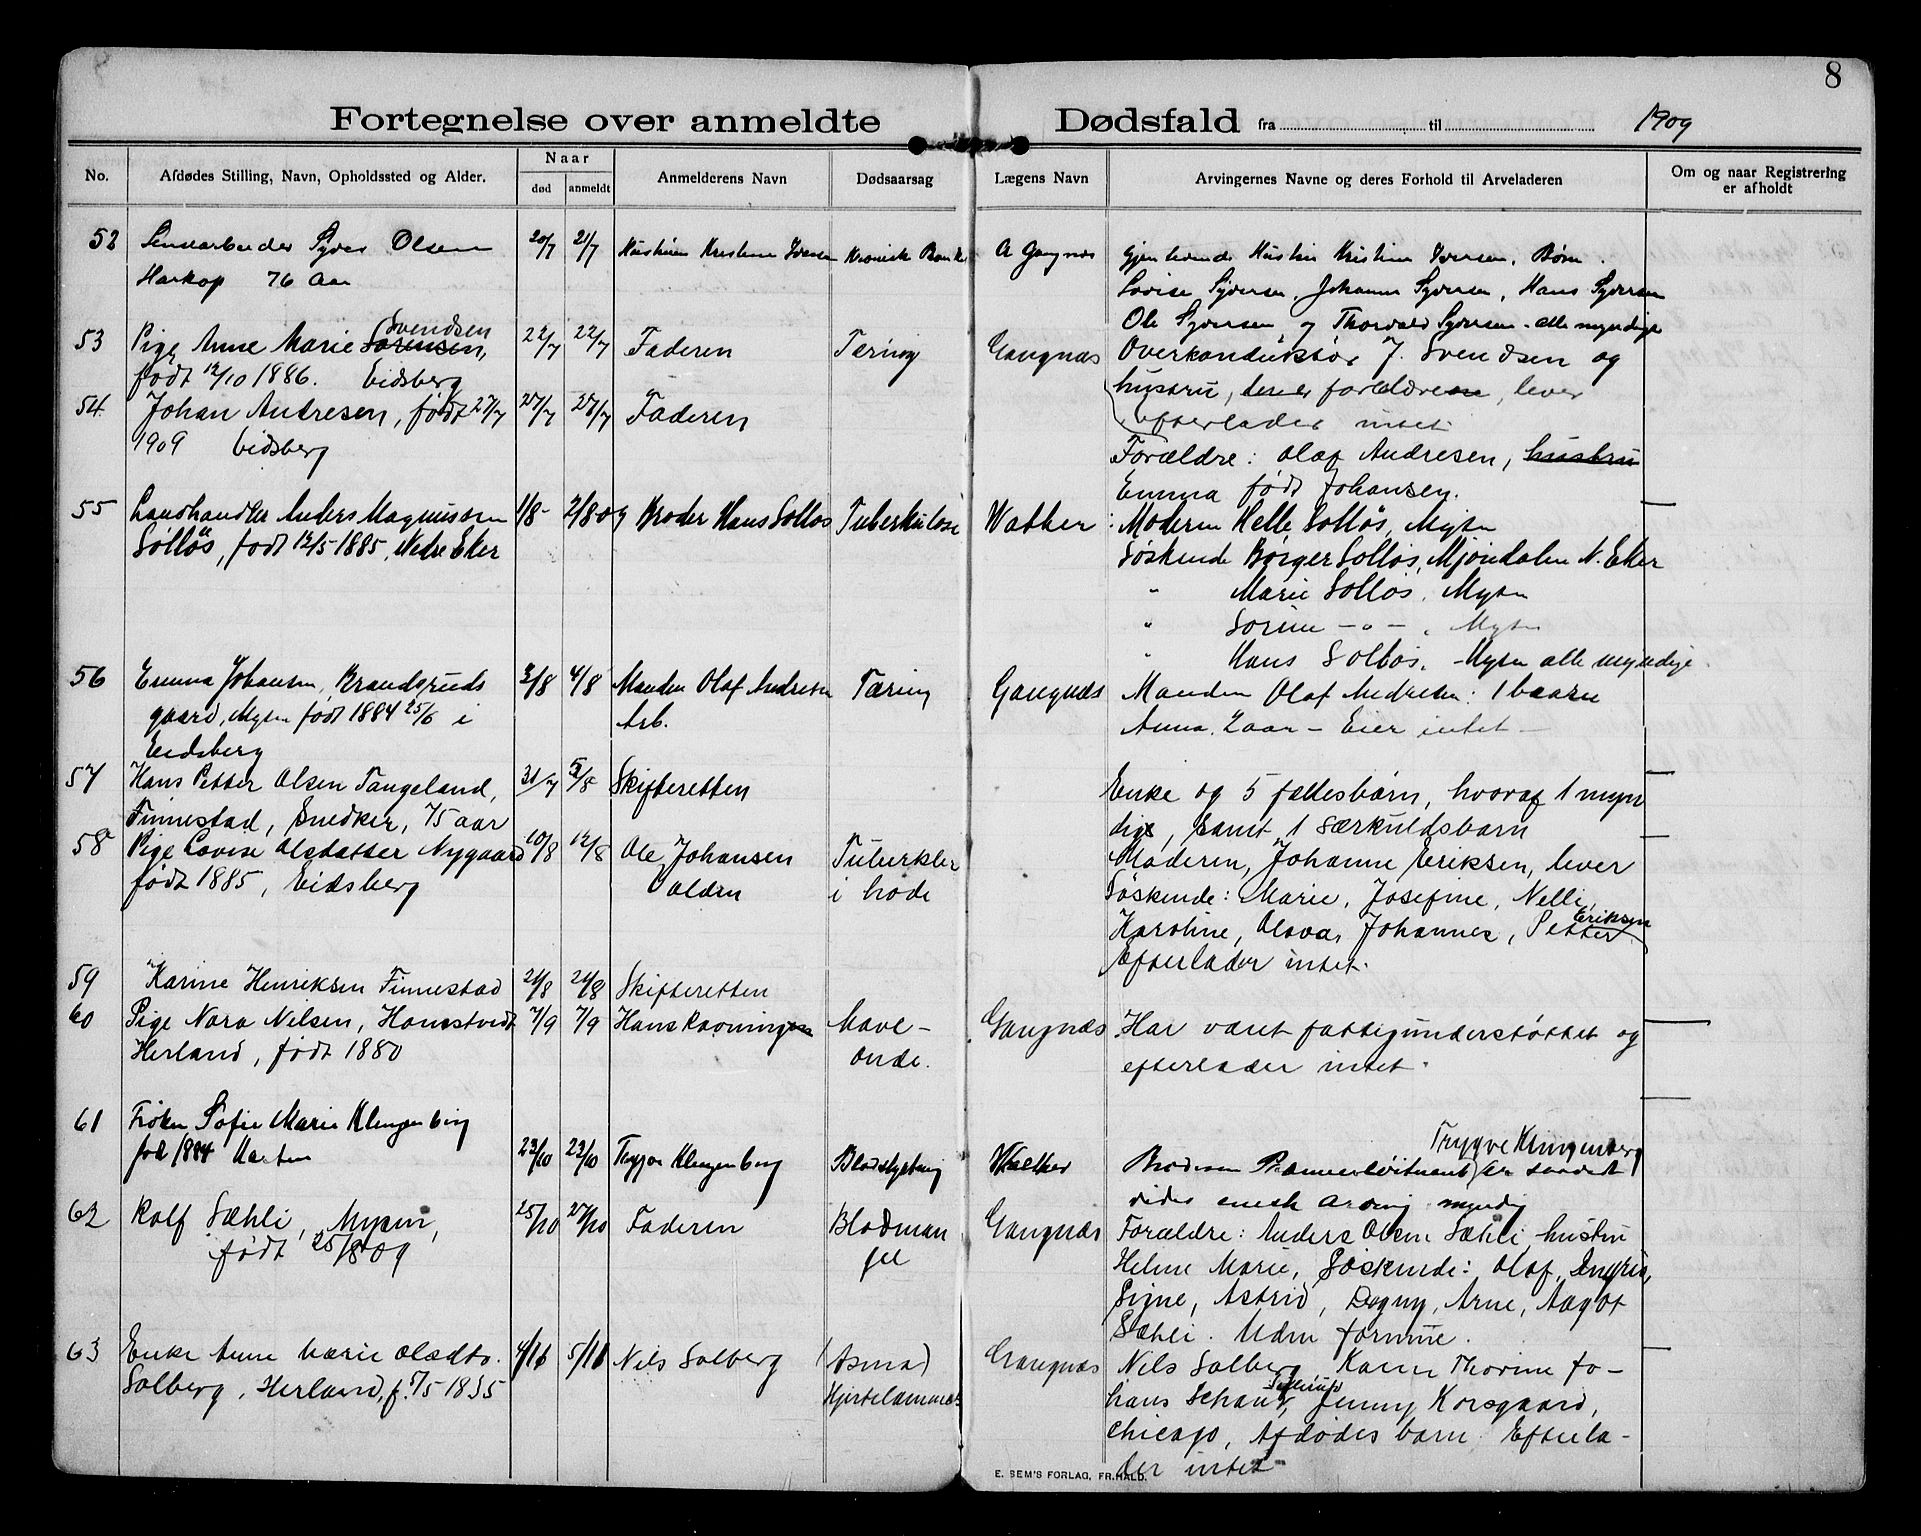 8
Fortegnelse over anmeldte Dødsfald fra til 1909
No.
Afdødes Stilling, Navn, Opholdssted og Alder.
Naar
død
anmeldt
Anmelderens Navn
Dødsaarsag
Lægens Navn
Arvingernes Navne og deres Forhold til Arveladeren
Om og naar Registrering
er afholdt
52 Olsen 20/7 21/7 Hustruen Kristine Kronisk A Gangnæs Gjenlevende Hustru Kristine Børn.
76 Aar
Lovise Syversen, Johanne Syversen, Hans Syversen
Ole Syversen og Thorvald Syversen - alle myndige
Svendsen
53 Pige Anne Marie Sørensen, 22/7 22/7 Faderen Tæring Gangnæs Overkonduktør J. Svendsen og
født 12/10 1886. Eidsberg
hustru, forældrene, lever
efterlader intet.
54 Johan Andresen, født 27/7 27/7 27/7 Faderen
1909 Eidsberg
Forældre: Olaf Andresen, hustru
Emma født Johansen.
55 Landhandler Anders Magnussen 1/8- 2/8-09 Broder Hans Solløs Tuberkulose Wather Moderen Helle Solløs, Mysen
Solløs, født 12/5 1885, Nedre Eker
Søskende Børger Solløs, Mjøndalen N. Eker
" Marie Solløs, Mysen
" Sorine -"- , Mysen
" Hans Solløs, - Mysen alle myndige.
56 Emma Johansen, Brandsruds 3/8 4/8 Manden Olaf Andresen Tæring Gangnæs Manden Olaf Andresen: 1 baarn
gaard, Mysen født 1884 25/6 i
Arb.
Anna, 2 aar - Eier intet -
Eidsberg
57 Hans Petter Olsen Tangeland, 31/7 5/8 Skifteretten Enke og 5 fællesbørn, hvoraf 1 myn
Finnestad, Snedker, 75 aar
dig, samt 1 særkuldsbarn
58 Pige Lovise Olsdatter Nygaard 10/8 12/8 Ole Johansen Tuberkler Moderen, Johanne Eriksen, lever
født 1885, Eidsberg
i hode
Søskende: Marie, Josefine, Nelli,
Eriksen
Karoline, Olava, Johannes, Petter
Efterlader intet.
59 Karine Henriksen Finnestad 24/8 24/8 Skifteretten
60 Pige Nora Nilsen, 7/9 7/9 Hans Mave- Gangnæs Har været fattigunderstøttet og
Herland, født 1880
onde.
efterlader intet.
61 Frøken Sofie Marie Klingenberg
Trygve Klingenberg
født 1884 23/10 23/10 Trygve Klingenberg Blodstyrtning Walther Broderen Premierløitnant
eneste arving myndig
62 Rolf Sæhli, Mysen, 25/10 27/10 Faderen Blodman Gangnæs Forældre: Anders Olsen Sæhli, hustru
født 25/8 09
gel
Helene Marie, Søskende: Olaf, Ingrid,
Signe, Astrid, Dagny, Arne, Aagot
Sæhli. Uden formue.
63 Enke Anne Marie Olsdtr. 4/11 5/11 Nils Solberg (Asma) Gangnæs Nils Solberg, Karen Thorine Jo-
Solberg, Herland, f. 1835
Hjertelammelse
hans Schau, Jenny Korsgaard,
Chicago, Afdødes barn. Efterla-
der intet
E. SEM'S FORLAG, FR.HALD.